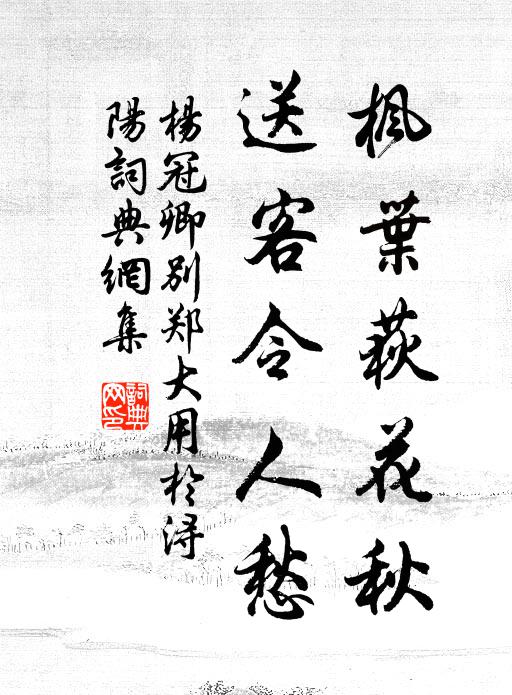 枫葉荻花秋
送客令人愁
楊冠卿别郑大用於浔
陽詞典網集
詞典网印